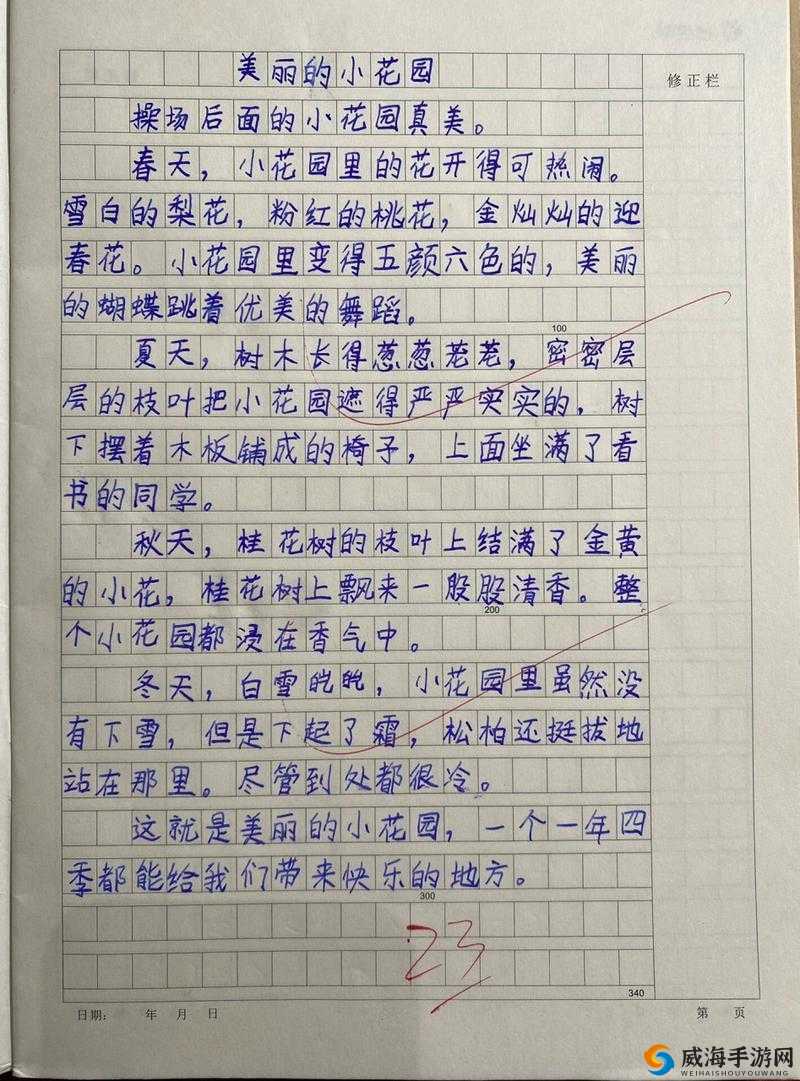 美丽的小花园
修正栏
操场后面的小花园真美。
春天，小花园里的花开得可热闹。
雪白的梨花，粉红的桃花，金灿灿的迎
春花。小花园里变得五颜六色的，美丽
的蝴蝶跳着优美的舞蹈。
100
夏天，树木长得葱葱茏茏，密密层
层的枝叶把小花园遮得严严实实的，树
下摆着木板铺成的椅子，上面坐满了看
书的同学。
秋天，桂花树的枝叶上结满了金黄
的小花，桂花树上飘来一股股清香。整
200
个小花园都浸在香气中。
冬天，白雪皑皑，小花园里虽然没
有下雪，但是下起了霜，松柏还挺拔地
站在那里。尽管到处都很冷。
这就是美丽的小花园，一个一年四
季都能给我们带来快乐的地方。
300
23
340
日期： 年 月 日
第 页
威海手游网
WEIHAISHOUYOUWANG